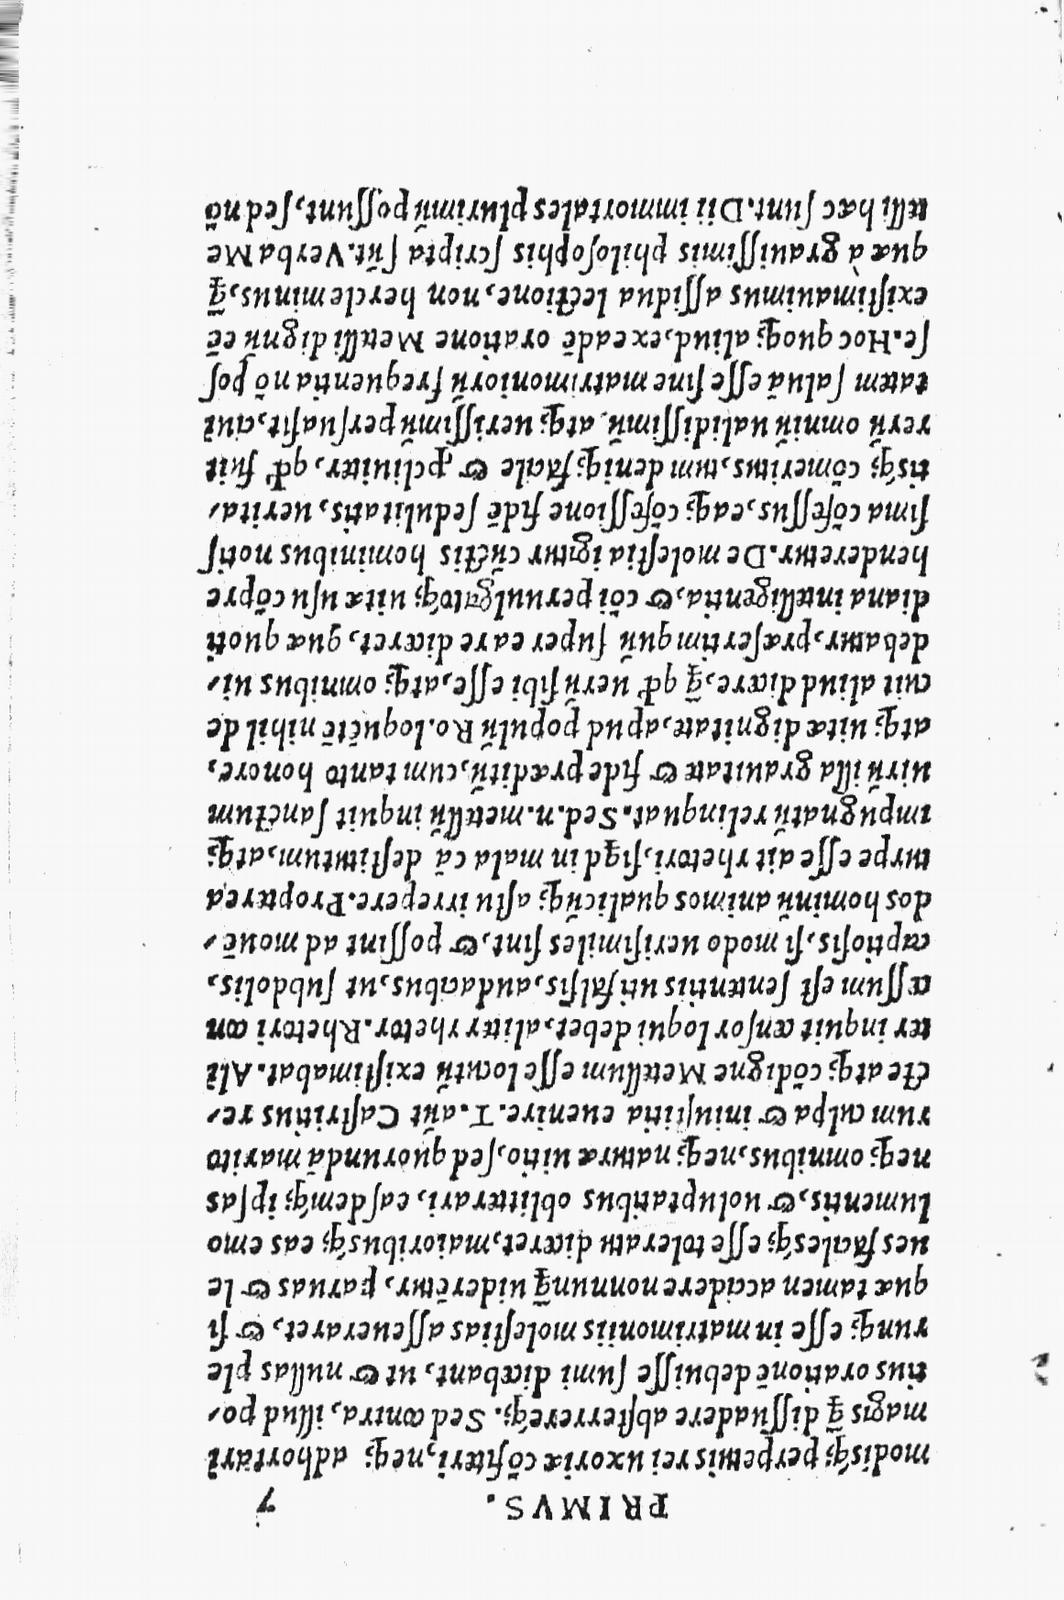 PRIMVS. 7
modisq́; perpetuis rei uxoriæ cōfiteri, neq; adhortari
magis q̃ dissuadere absterrereq́;. Sed contra, illud po-
tius orationē debuisse sumi dicebant, ut & nullas ple
runq; esse in matrimoniis molestias asseueraret, & si
quæ tamen accidere nonnunq̃ uiderētur, paruas & le
ues facilesq́; esse toleratu diceret, maioribusq́; eas emo
lumentis, & uoluptatibus oblitterari, easdemq́; ipsas
neq; omnibus, neq; naturæ uitio, sed quorundā marito
rum culpa & iniustitia euenire. T. aūt Castritius re-
cte atq; cōdigne Metellum esse locutū existimabat. Ali
ter inquit censor loqui debet, aliter rhetor. Rhetori con
cessum est sententiis uti falsis, audacibus, ut subdolis,
captiosis, si modo uerisimiles sint, & possint ad mouē-
dos hominū animos qualicūq; astu irrepere. Propterea
turpe esse ait rhetori, si qd in mala cā destitutum, atq;
impugnatū relinquat. Sed. n. metellū inquit sanctum
uirū illa grauitate & fide præditū, cum tanto honore,
atq; uitæ dignitate, apud populū Ro. loquētē nihil de
cuit aliud dicere, q̃ qđ uerū sibi esse, atq; omnibus ui-
debatur, præsertim quū super ea re diceret, quæ quoti
diana intelligentia, & cōi peruulgatoq́; uitæ usu cōpre
henderetur. De molestia igitur cūctis hominibus notis
sima cōfessus, eaq; cōfessione fidē sedulitatis, uerita-
tisq́; cōmeritus, tum deniq; facile & ꝓcliuiter, qđ fuit
rerū omniū ualidissimū, atq; uerissimū persuasit, ciui
tatem saluā esse sine matrimoniorū frequentia nō pos
se. Hoc quoq; aliud, ex eadē oratione Metelli dignū eē
existimauimus assidua lectione, non hercle minus, q̃
quæ à grauissimis philosophis scripta sūt. Verba Me
telli hæc sunt. Dii immortales plurimū possunt, sed nō